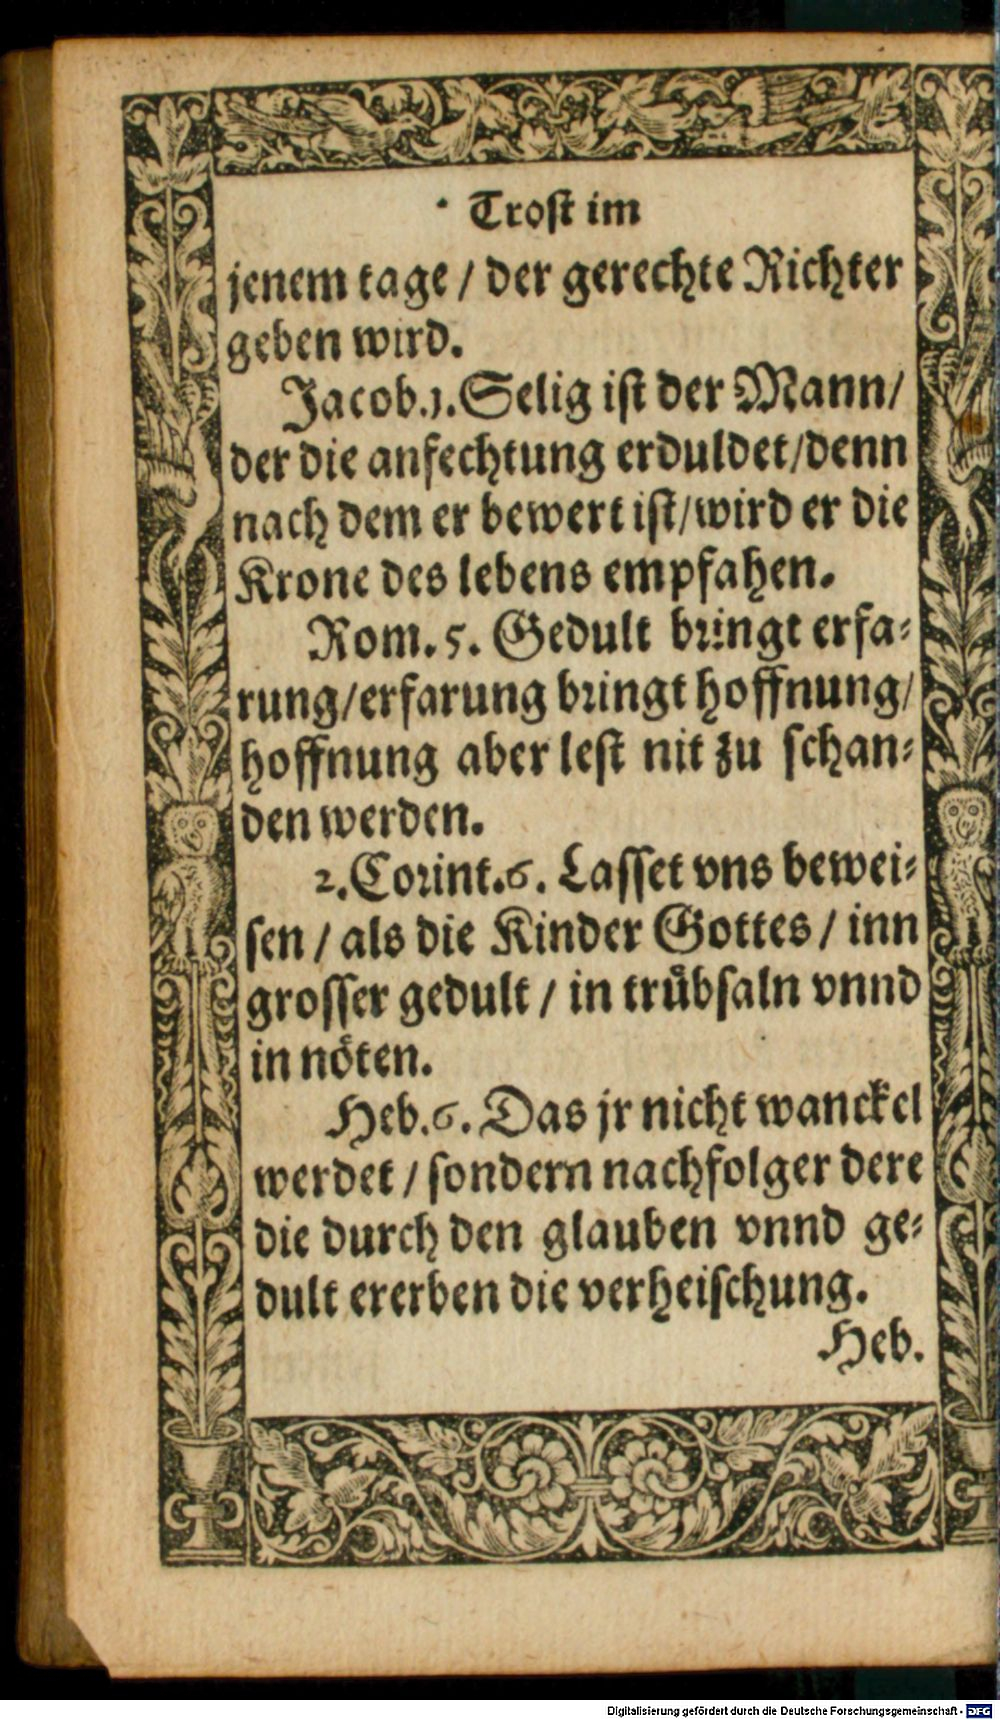 Trost im
jenem tage / der gerechte Richter
geben wird.
Jacob.1. Selig ist der Mann/
der die anfechtung erduldet/denn
nach dem er bewert ist/wird er die
Krone des lebens empfahen.
Rom. 5. Gedult bringt erfa-
rung/erfarung bringt hoffnung/
hoffnung aber lest nit zu schan-
den werden.
2. Corint.6. Lasset vns bewei-
sen / als die Kinder Gottes / inn
grosser gedult / in trůbsaln vnnd
in nöten.
Heb.6. Das jr nicht wanckel
werdet / sondern nachfolger dere
die durch den glauben vnnd ge-
dult ererben die verheischung.
Heb.
Digitalisierung gefördert durch die Deutsche Forschungsgemeinschaft - DFG